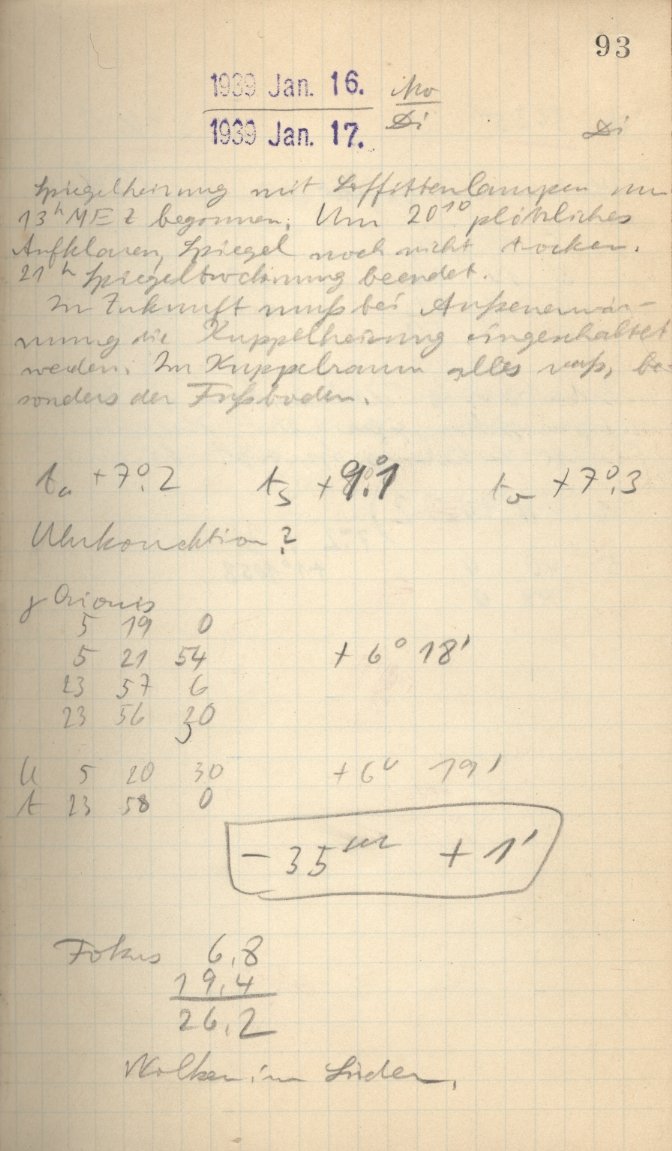 93
1939 Jan. 16. Mo
1939 Jan. 17. Di
Di
Spiegelheizung mit Soffittenlampen um
13h MEZ begonnen. Um 20 10 plötzliches
Aufklaren, Spiegel noch nicht trocken.
21h Spiegeltrocknung beendet.
In Zukunft muß bei Außenerwär-
mung die Kuppelheizung eingeschaltet
werden. Im Kuppelraum alles naß, be-
sonders der Fußboden.
ta +7°.2 ts +9°.1 +7°.3
Uhrkorrektion ?
γ Orionis
5 19 0
5 21 54 + 6° 18'
23 57 6
23 56 30
U 5 20 30 +6° 19'
t 23 58 0
- 35 sec + 1'
Fokus 6,8
19,4
26,2
Wolken im Süden.